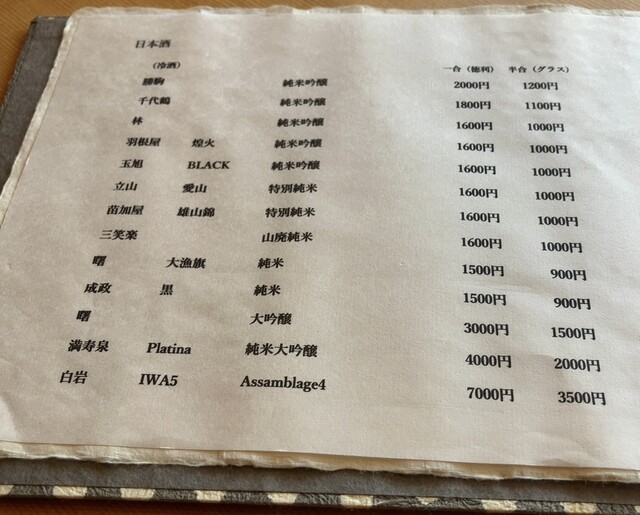 日本酒
（冷酒） 一合（徳利） 半合（グラス）
勝駒 純米吟醸 2000円 1200円
千代鶴 純米吟醸 1800円 1100円
林 純米吟醸 1600円 1000円
羽根屋 煌火 純米吟醸 1600円 1000円
玉旭 BLACK 純米吟醸 1600円 1000円
立山 愛山 特別純米 1600円 1000円
苗加屋 雄山錦 特別純米 1600円 1000円
三笑楽 山廃純米 1600円 1000円
曙 大漁旗 純米 1500円 900円
成政 黒 純米 1500円 900円
曙 大吟醸 3000円 1500円
満寿泉 Platina 純米大吟醸 4000円 2000円
白岩 IWA5 Assamblage4 7000円 3500円